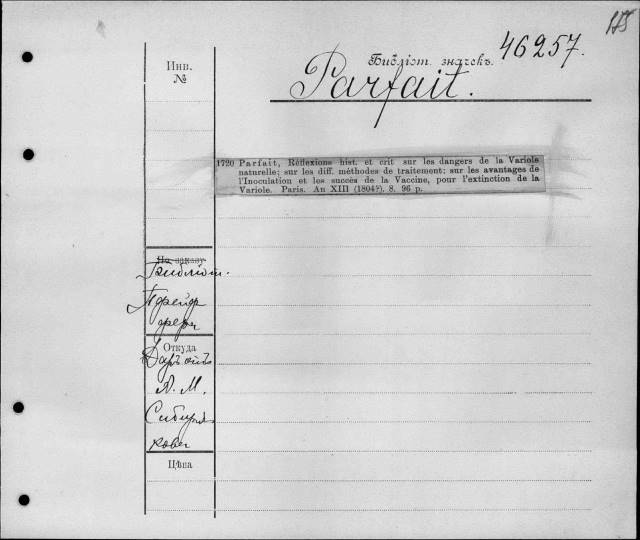 115
Инв.
№
Библіот. значекъ.
46257.
Parfait.
1720 Parfait, Réflexions hist. et crit sur les dangers de la Variole
naturelle; sur les diff. méthodes de traitement; sur les avantages de
l'Inoculation et les succès de la Vaccine, pour l'extinction de la
Variole. Paris. An XIII (1804?). 8. 96 p.
По заказу
Библіот.
Пфейф
фера
Откуда
Даръ
А. М.
Сибиря
кова
Цѣна